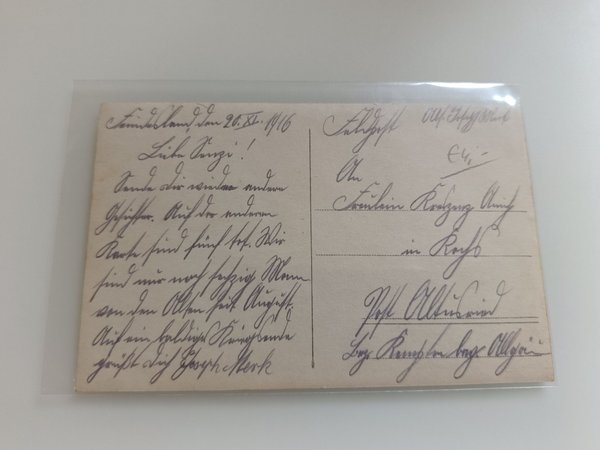 Feindesland, den 20. XI. 1916
Liebe Senzi!
Sende dir wieder andere
Gesichter. Auf der anderen
Karte sind fünf tot. Wir
sind nur noch sechzig Mann
von den Alten seit August.
Auf ein baldiges Kriegsende
grüßt dich Joseph Merk
Feldpost
€4,-
An
Fräulein Kreszenz
in
Post Altusried
Bez. Kempten bayr. Allgäu